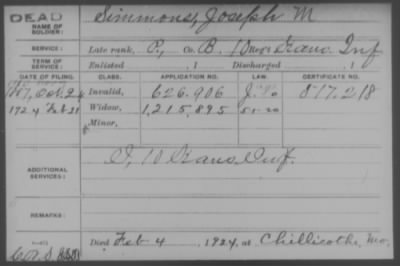 DEAD
NAME OF SOLDIER: Simmons, Joseph M
SERVICE: Late rank, P, Co. B, 10 Kans. Inf
TERM OF SERVICE: Enlisted , 1 Discharged , 1
DATE OF FILING. CLASS. APPLICATION NO. LAW. CERTIFICATE NO.
Oct. Invalid, 626.906 877.218
1924 Feb 21 Widow, 1,215,895
Minor,
ADDITIONAL SERVICES: I, 10 Kans. Inf.
REMARKS:
Died Feb 4, 1924, at Chillicothe Mo.